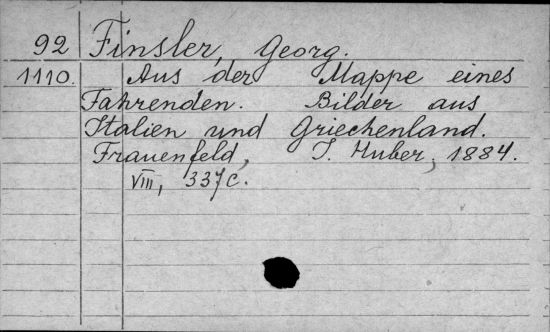 92 Finsler, Georg.
1110. Aus der Mappe eines
Fahrenden. Bilder aus
Italien und Griechenland.
Frauenfeld, J. Huber, 1884.
VIII, 337 c.